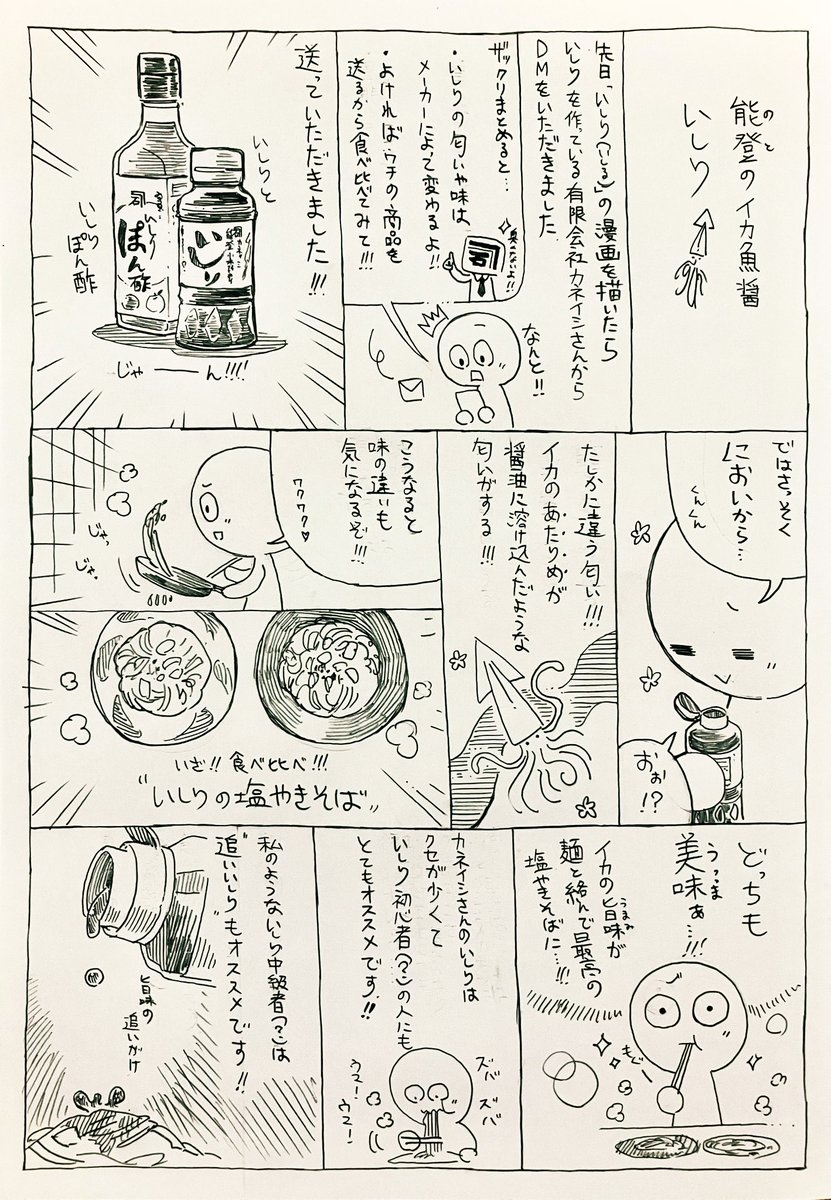 能登のイカ魚醤
のと
いしり
先日「いしり(いしる)」の漫画を描いたら
いしりを作っている有限会社カネイシさんから
DMをいただきました
ザックリまとめると…
・いしりの匂いや味は
メーカーによって変わるよ!!
・よければウチの商品を
送るから食べ比べてみて!!!
臭くないよ!!
なんと!!
送っていただきました!!!
いしりと
いしり
ぽん酢
いしり
ぽん酢
いしり
じゃーーん!!!!
ではさっそく
においから…
くんくん
おぉ!?
たしかに違う匂い!!!
イカのあたりめが
醤油に溶け込んだような
匂いがする!!!
こうなると
味の違いも
気になるぞ!!!
ワクワク♥
じゃっ
じゃっ
いざ!!食べ比べ!!!
"いしりの塩やきそば"
どっちも
美味ぁ…!!!
うっま
イカの旨味が
うまみ
麺と絡んで最高の
塩やきそばに…!!!
もぐ
カネイシさんのいしりは
クセが少くて
いしり初心者(?)の人にも
とてもオススメです!!
ズバ
ズバ
ウマ!
ウマ!
私のようないしり中級者(?)は
"追いいしり"もオススメです!!
旨味の
追いがけ